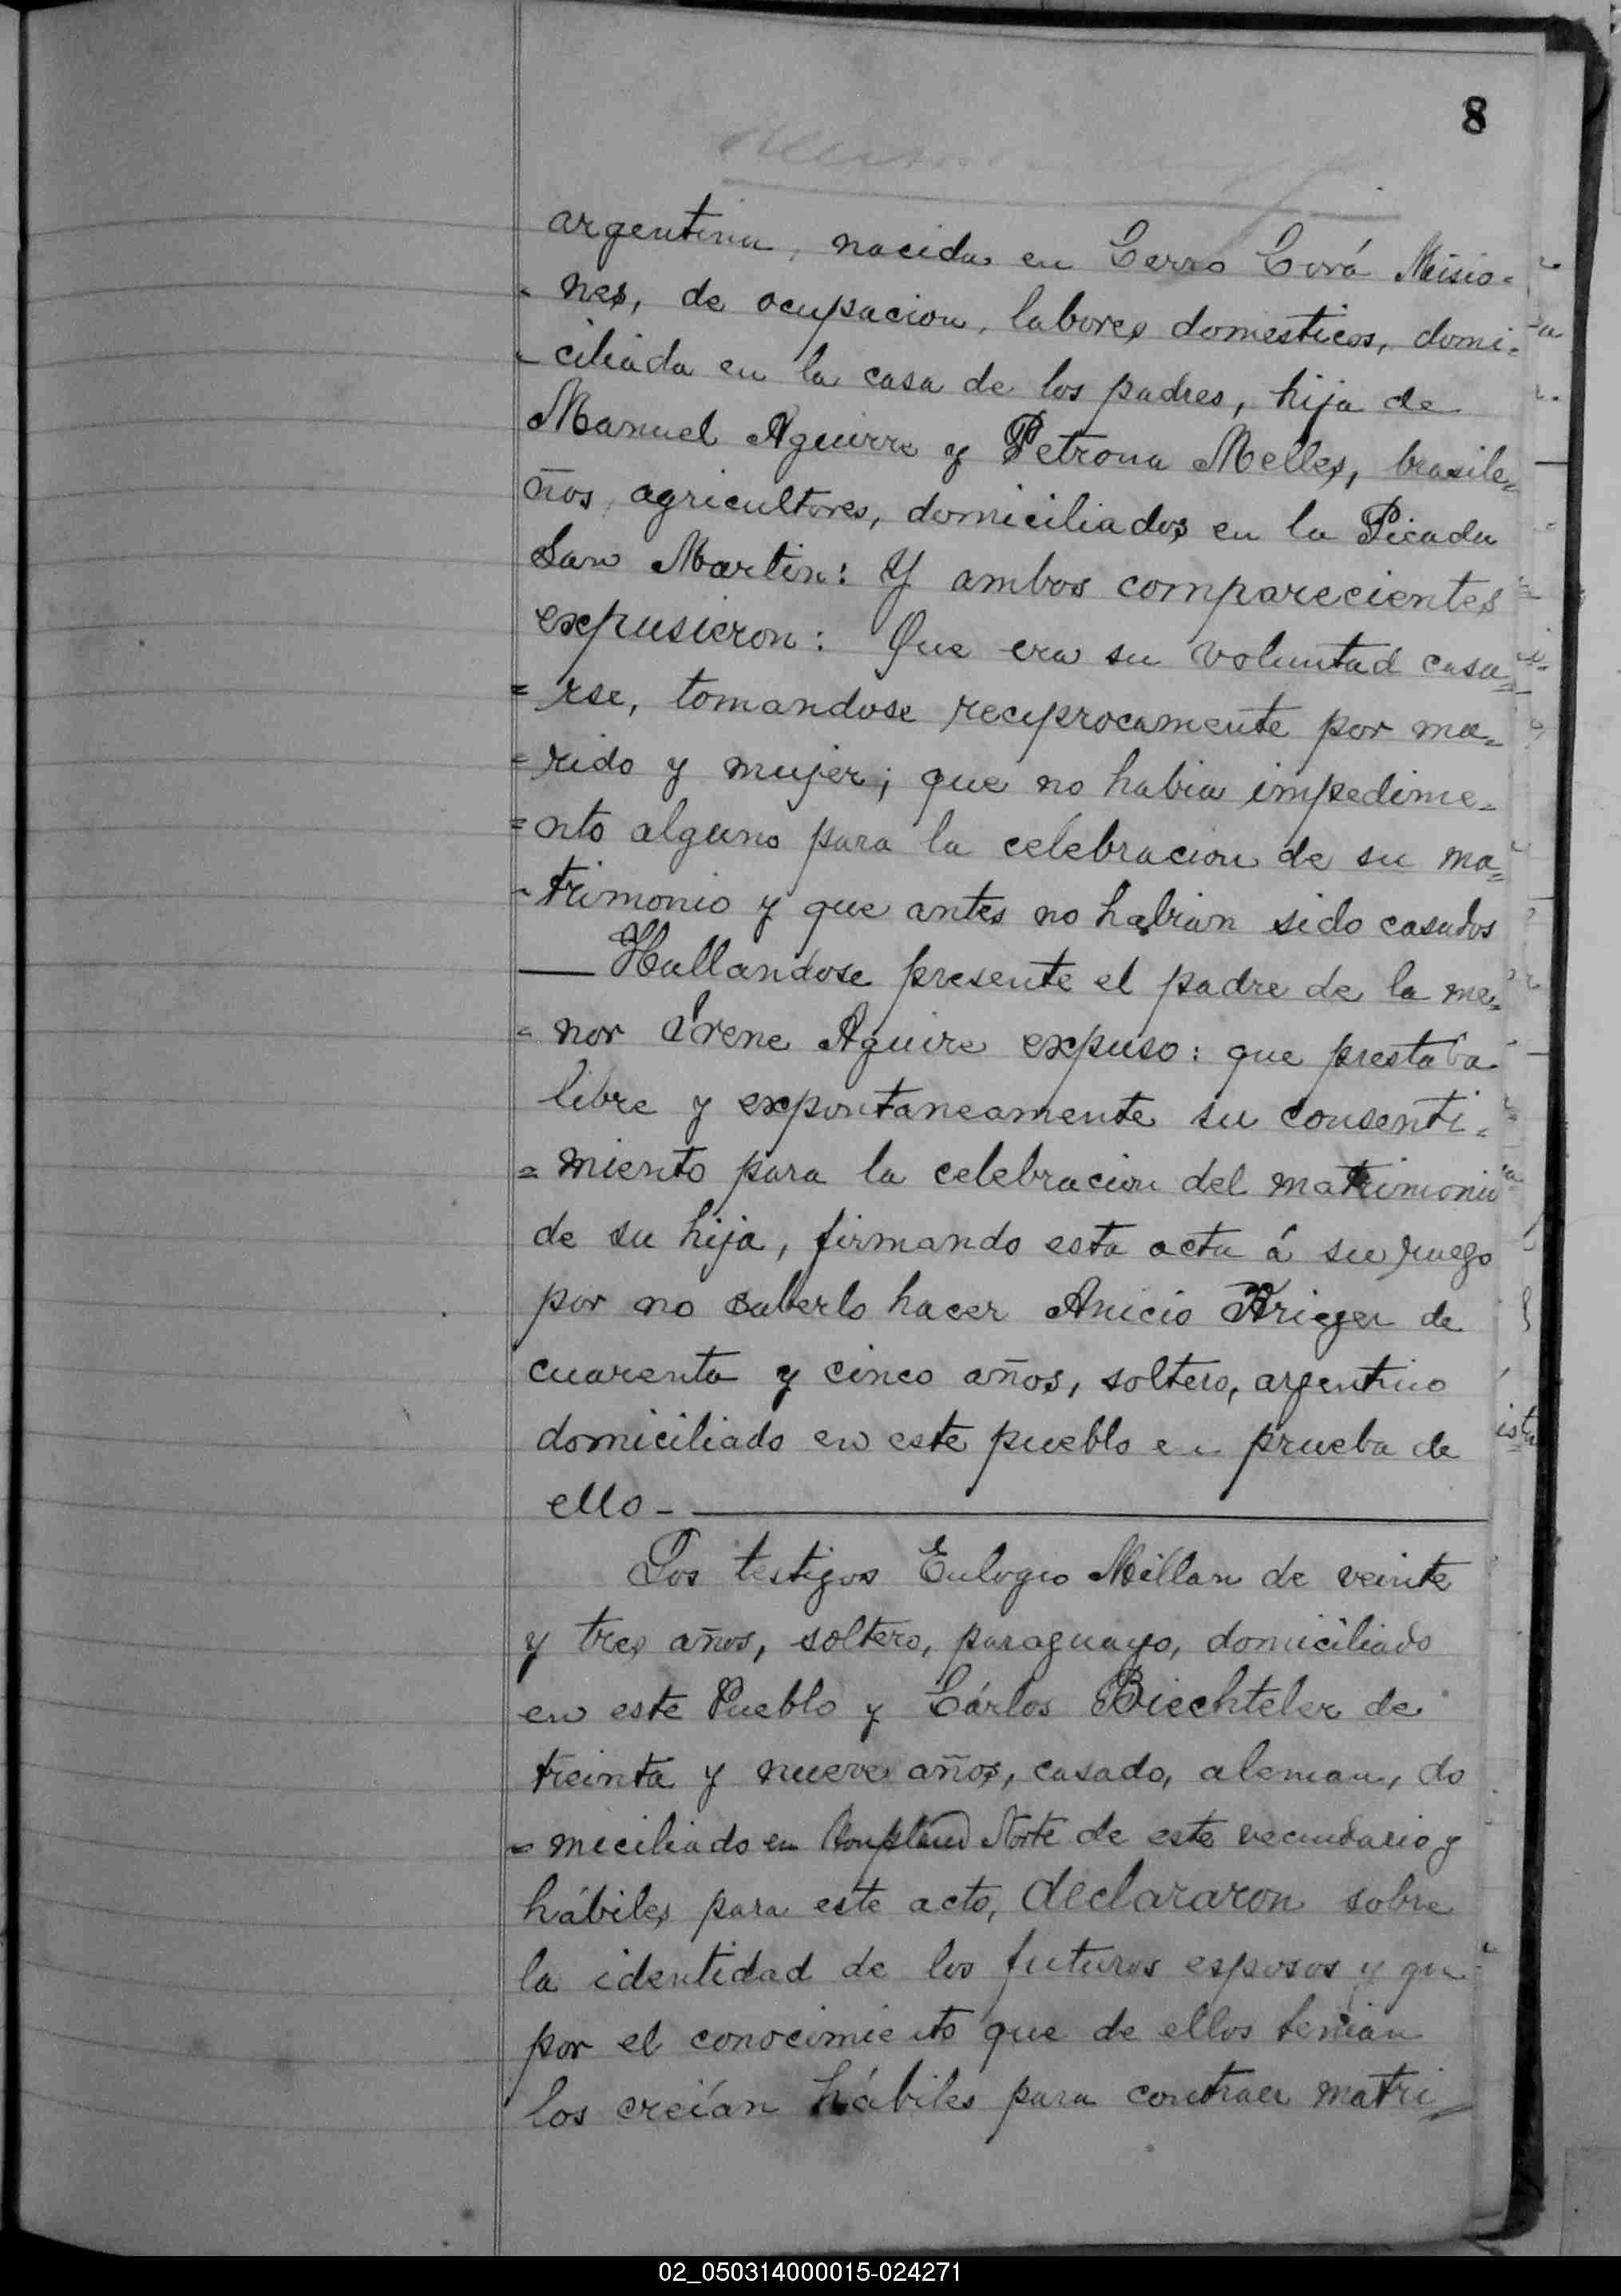 8
argentina, nacida en Cerro Corá Misio-
- nes, de ocupacion, labores domesticos, domi-
- ciliada en la casa de los padres, hija de
Manuel Aguirre y Petrona Melles, brasile=
ños, agricultores, domiciliados en la Picada
San Martin: Y ambos comparecientes
expusieron: Que era su voluntad casa=
= rse, tomandose recyprocamente por ma=
= rido y mujer; que no habia impedime-
= nto alguno para la celebracion de su ma=
- trimonio y que antes no habian sido casados
— Hallandose presente el padre de la me=
- nor Irene Aguire expuso: que prestaba
libre y expontaneamente su consenti=
= miento para la celebracion del matrimonio
de su hija, firmando esta acta á su ruego
por no saberlo hacer Anicio Krieger de
cuarenta y cinco años, soltero, argentino
domiciliado en este pueblo en prueba de
ello -
Los testigos Eulogio Millan de veinte
y tres años, soltero, paraguayo, domiciliado
en este Pueblo y Cárlos Biechteler de
treinta y nueve años, casado, aleman, do
= miciliado en Bompland Norte de este vecindario y
hábiles para este acto, declararon sobre
la identidad de los futuros esposos y que
por el conocimiento que de ellos tenian
los creían hábiles para contraer matri=
02_050314000015-024271